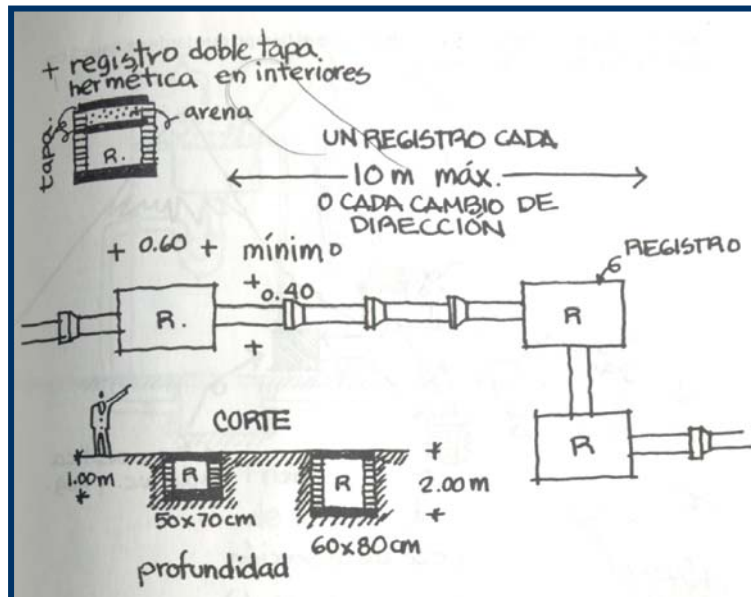 + registro doble tapa.
hermética en interiores
tapa.
arena
R.
UN REGISTRO CADA
10 m máx.
O CADA CAMBIO DE
DIRECCIÓN
+ 0.60 +
mínimo
+
0.40
+
REGISTRO
R.
R
R
CORTE
1.00m
R
50x70cm
R
60x80cm
2.00m
profundidad